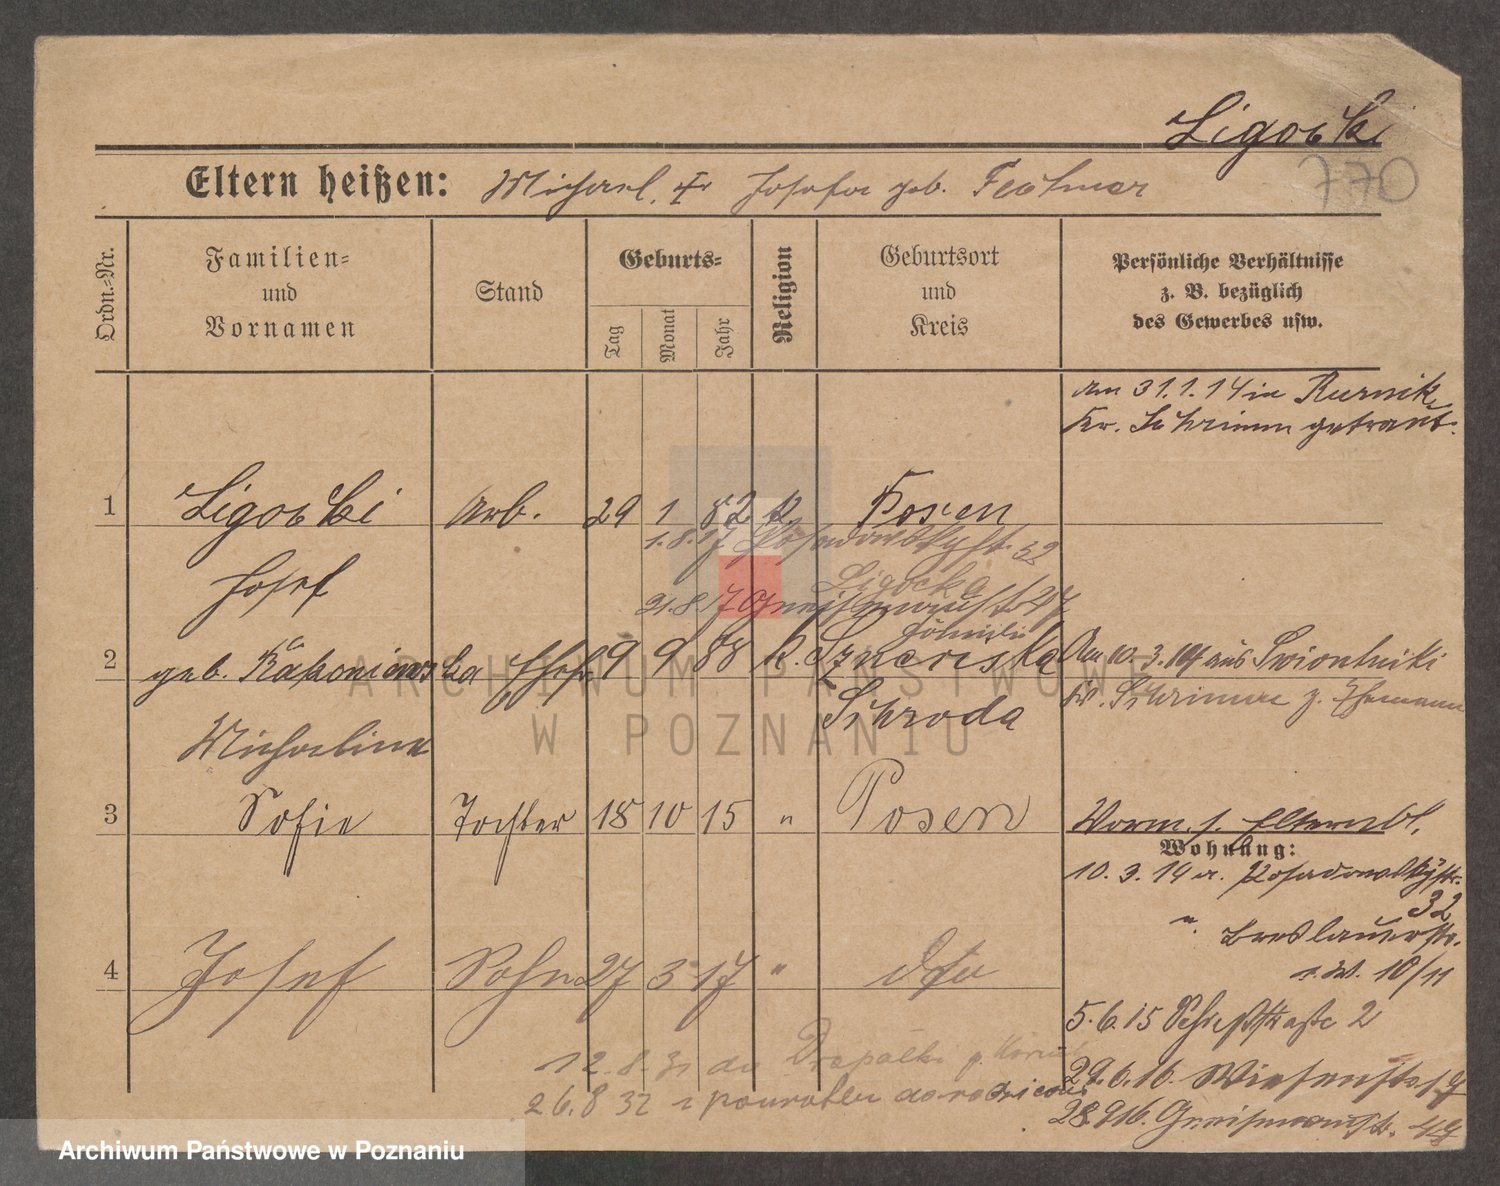 Ligocki
770
Eltern heißen: Michael, Josefa geb.
Ordn.-Nr.
Familien- und Vornamen
Stand
Geburts-
Tag
Monat
Jahr
Religion
Geburtsort und Kreis
Persönliche Verhältnisse
z. B. bezüglich
des Gewerbes usw.
am 31.1.14 in Kurnik,
Kr. Schrimm getraut.
1 Ligocki Arb. 29 1 82 k. Posen
1.8.17 Posadowskystr. 32
Josef
Ligocka
21.8.17 Gneisenaustr.
2 geb. Ehefr. 9 9 88 k. Am 10.3.14 aus
Kr. Schrimm z. Ehemann
Michaeline Schroda
3 Sofie Tochter 18 10 15 " Posen
Wohnung:
10.3.14 a. Posadowskystr.
32
". Breslauerstr.
10/11
4 Josef Sohn 27 3 17 " dto
5.6.15 Schießstraße 2
12.8.31 do
29.6.16. Wiesenstr.
26.8 32 z powrotem do rodziców
28.9.16. Gneisenaustr.
ARCHIWUM PAŃSTWOWE
W POZNANIU
Archiwum Państwowe w Poznaniu